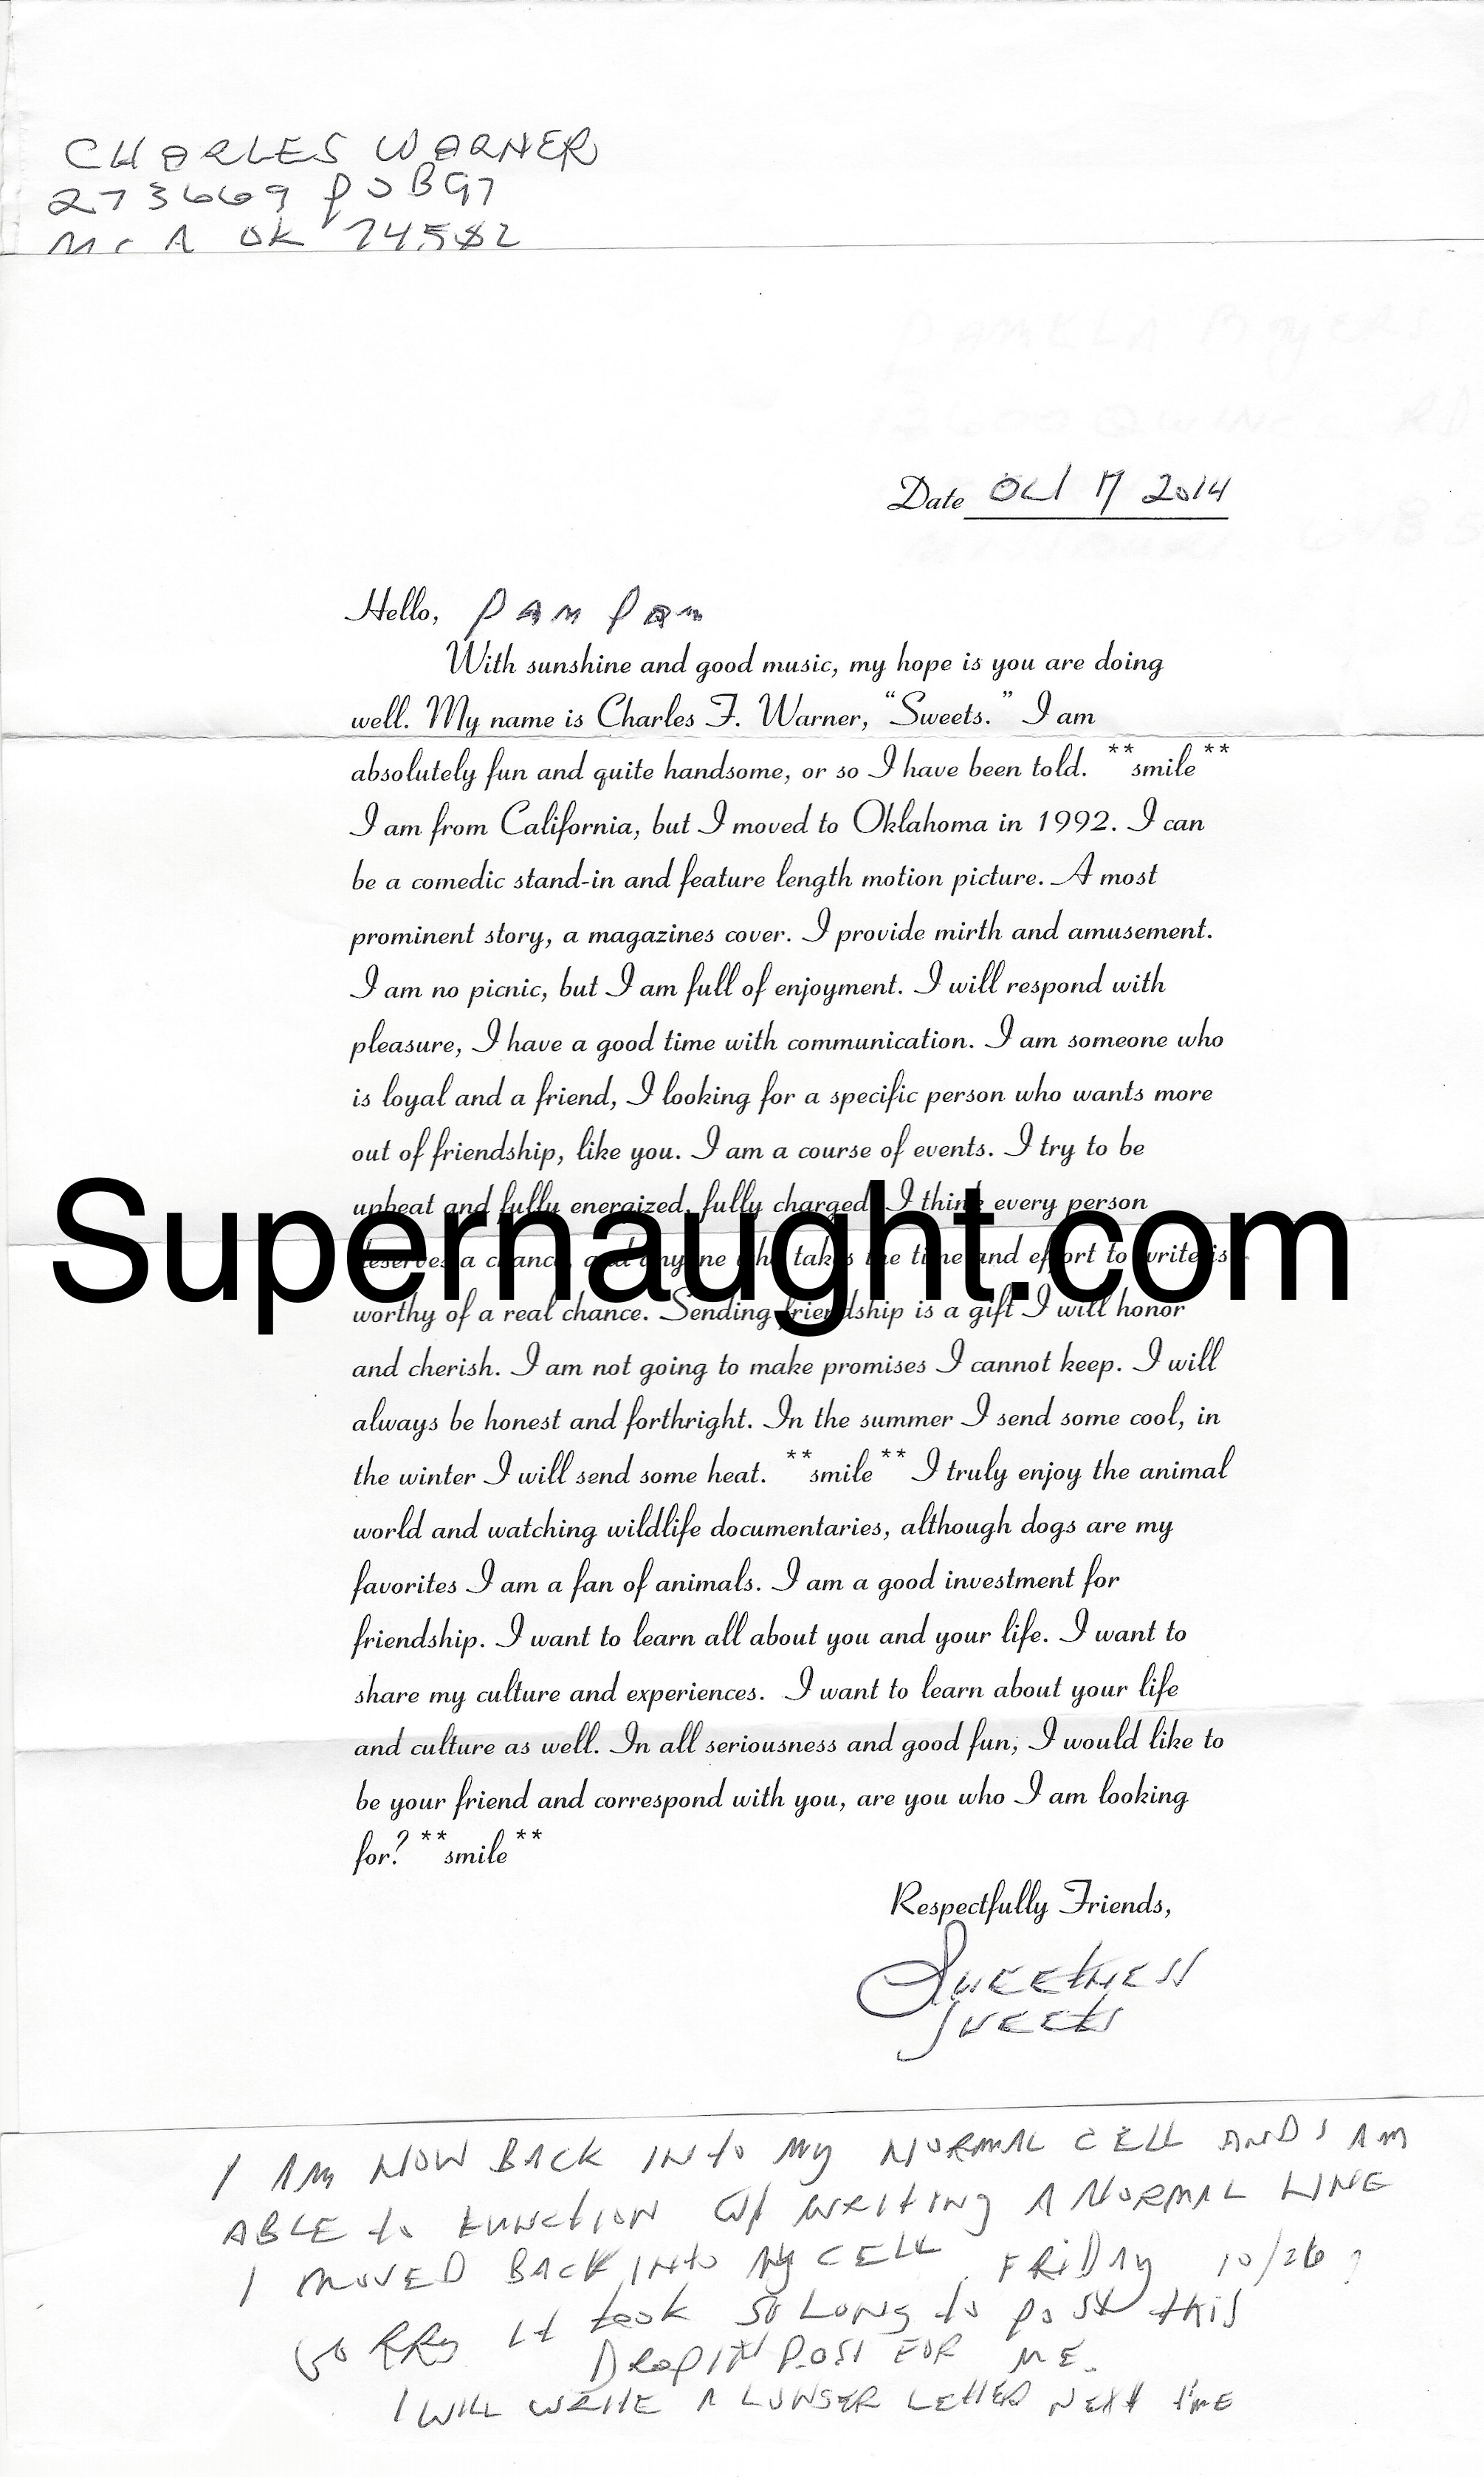 CHARLES WARNER
273669 POB 97
McA OK 74502
Date Oct 17 2014
Hello, PAM PAM
With sunshine and good music, my hope is you are doing
well. My name is Charles F. Warner, “Sweets.” I am
absolutely fun and quite handsome, or so I have been told. **smile**
I am from California, but I moved to Oklahoma in 1992. I can
be a comedic stand-in and feature length motion picture. A most
prominent story, a magazines cover. I provide mirth and amusement.
I am no picnic, but I am full of enjoyment. I will respond with
pleasure, I have a good time with communication. I am someone who
is loyal and a friend, I looking for a specific person who wants more
out of friendship, like you. I am a course of events. I try to be
upbeat and fully energized, fully charged. I think every person
Supernaught.com
deserves a chance, and anyone who takes the time and effort to write is
worthy of a real chance. Sending friendship is a gift I will honor
and cherish. I am not going to make promises I cannot keep. I will
always be honest and forthright. In the summer I send some cool, in
the winter I will send some heat. **smile** I truly enjoy the animal
world and watching wildlife documentaries, although dogs are my
favorites I am a fan of animals. I am a good investment for
friendship. I want to learn all about you and your life. I want to
share my culture and experiences. I want to learn about your life
and culture as well. In all seriousness and good fun, I would like to
be your friend and correspond with you, are you who I am looking
for? **smile**
Respectfully Friends,
Sweetness
Sweets
I AM NOW BACK INto My NORMAL CELL AND I AM
ABLE to FUNCtION W/ WRItING A NORMAL LINE
I MOVED BACK INto My CELL FRIDAy 10/26
SORRy It took SO LONG to POSt tHIS
DROP IN POSt FOR ME.
I WILL WRItE A LONGER LEttER NEXt tIME